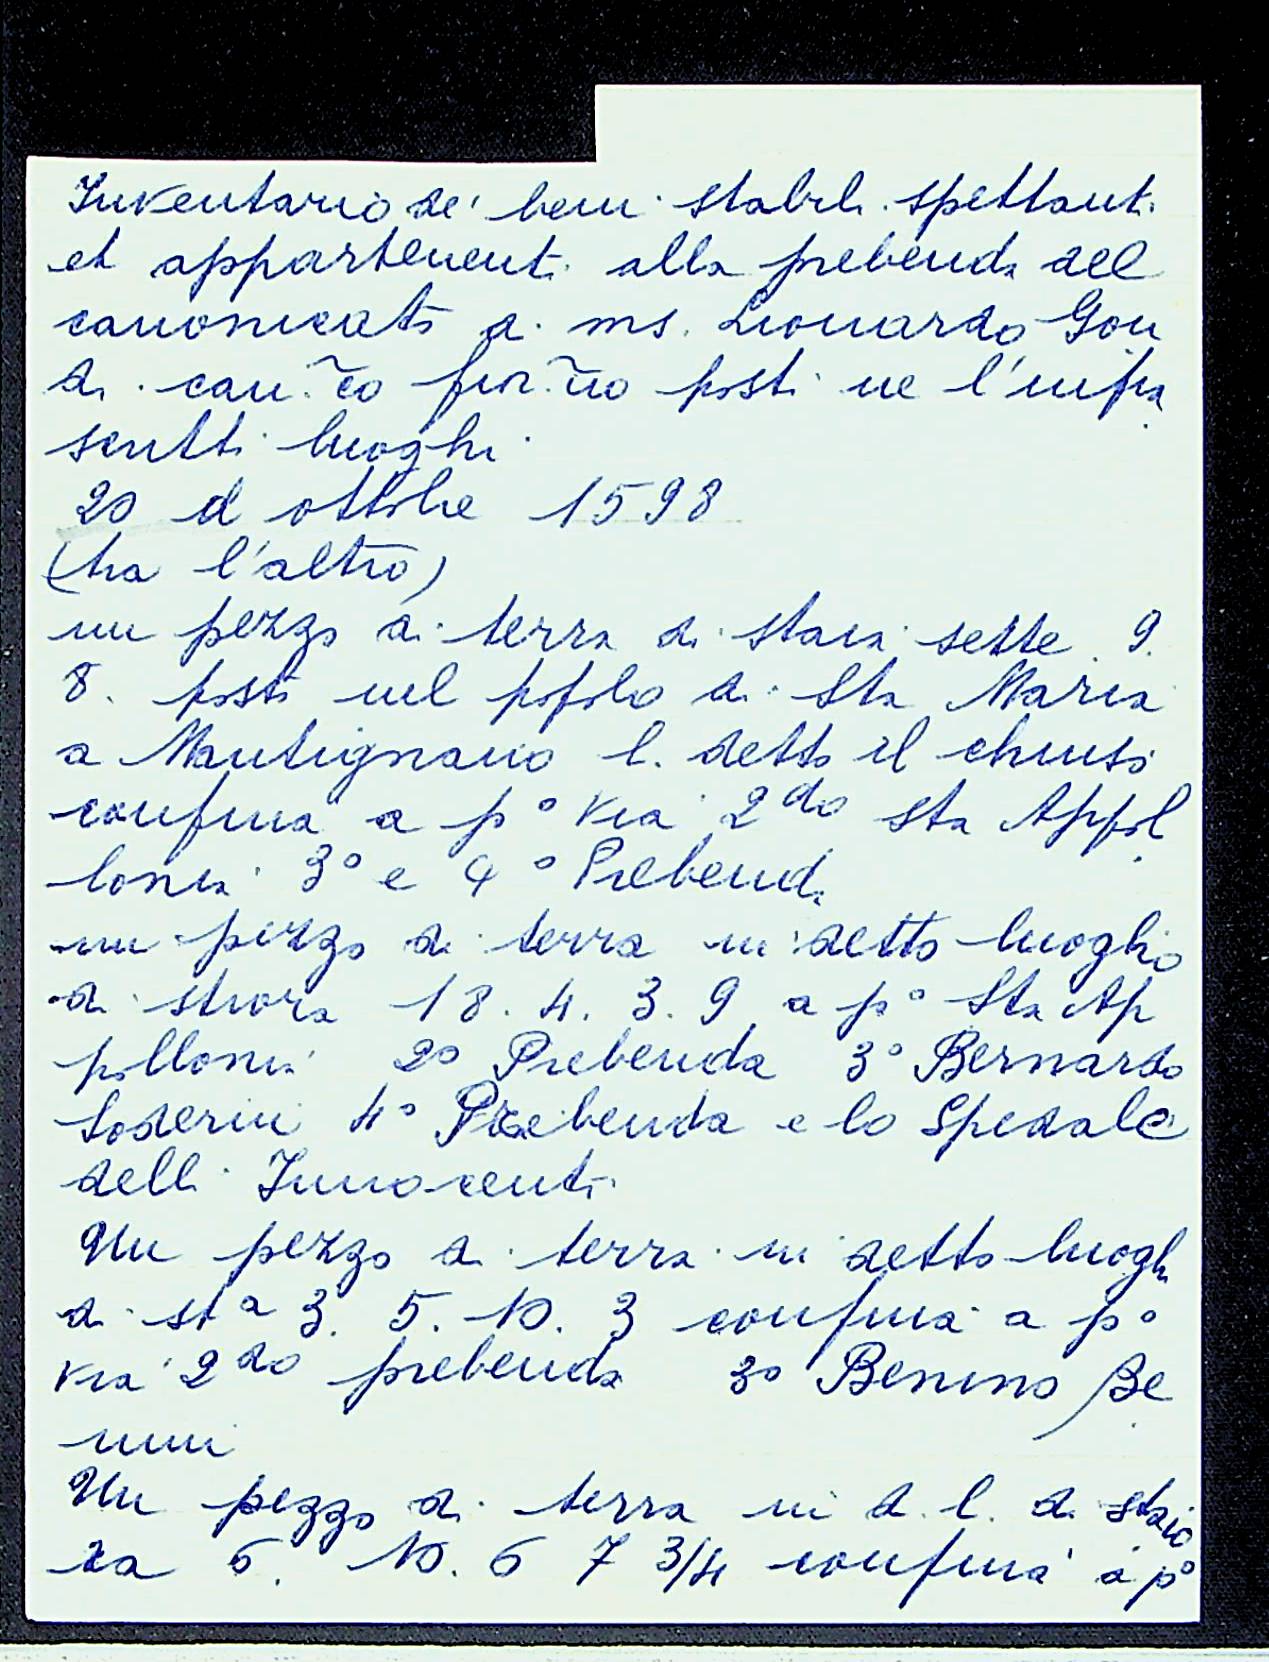 Inventario de' beni stabili spettanti
et appartenenti alla prebenda del
canonicato di ms. Lionardo Gon
di can.co fior.no posti ne l'infra
scritti luoghi
20 d ottobre 1598
(tra l'altro)
un pezzo di terra di staia sette 9.
8. posti nel popolo di Sta Maria
a Mantignano l. detto il chiuso
confina a p° via 2do Sta Appol
lonia 3° e 4° Prebenda
un pezzo di terra in detto luogho
di stiora 18. 4. 3. 9 a p° Sta Ap
pollonia 2° Prebenda 3° Bernardo
Soderini 4° Prebenda e lo Spedale
delli Innocenti
Un pezzo di terra in detto luogh
di sta 3. 5. 10. 3 confina a p°
via 2do prebenda 3° Benino Be
nini
Un pezzo di terra in d. l. di staio
ra 6. 10. 6 7 3/4 confina a p°